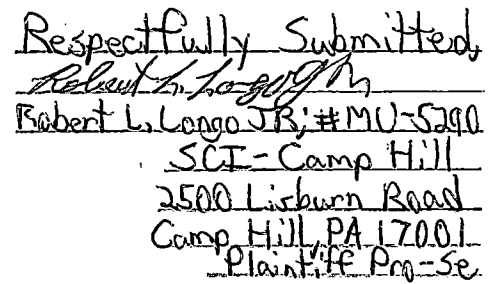 Respectfully Submitted,
Robert L. Longo Jr.
Robert L. Longo JR; #MU-5290
SCI-Camp Hill
2500 Lisburn Road
Camp Hill, PA 17001
Plaintiff Pro-Se